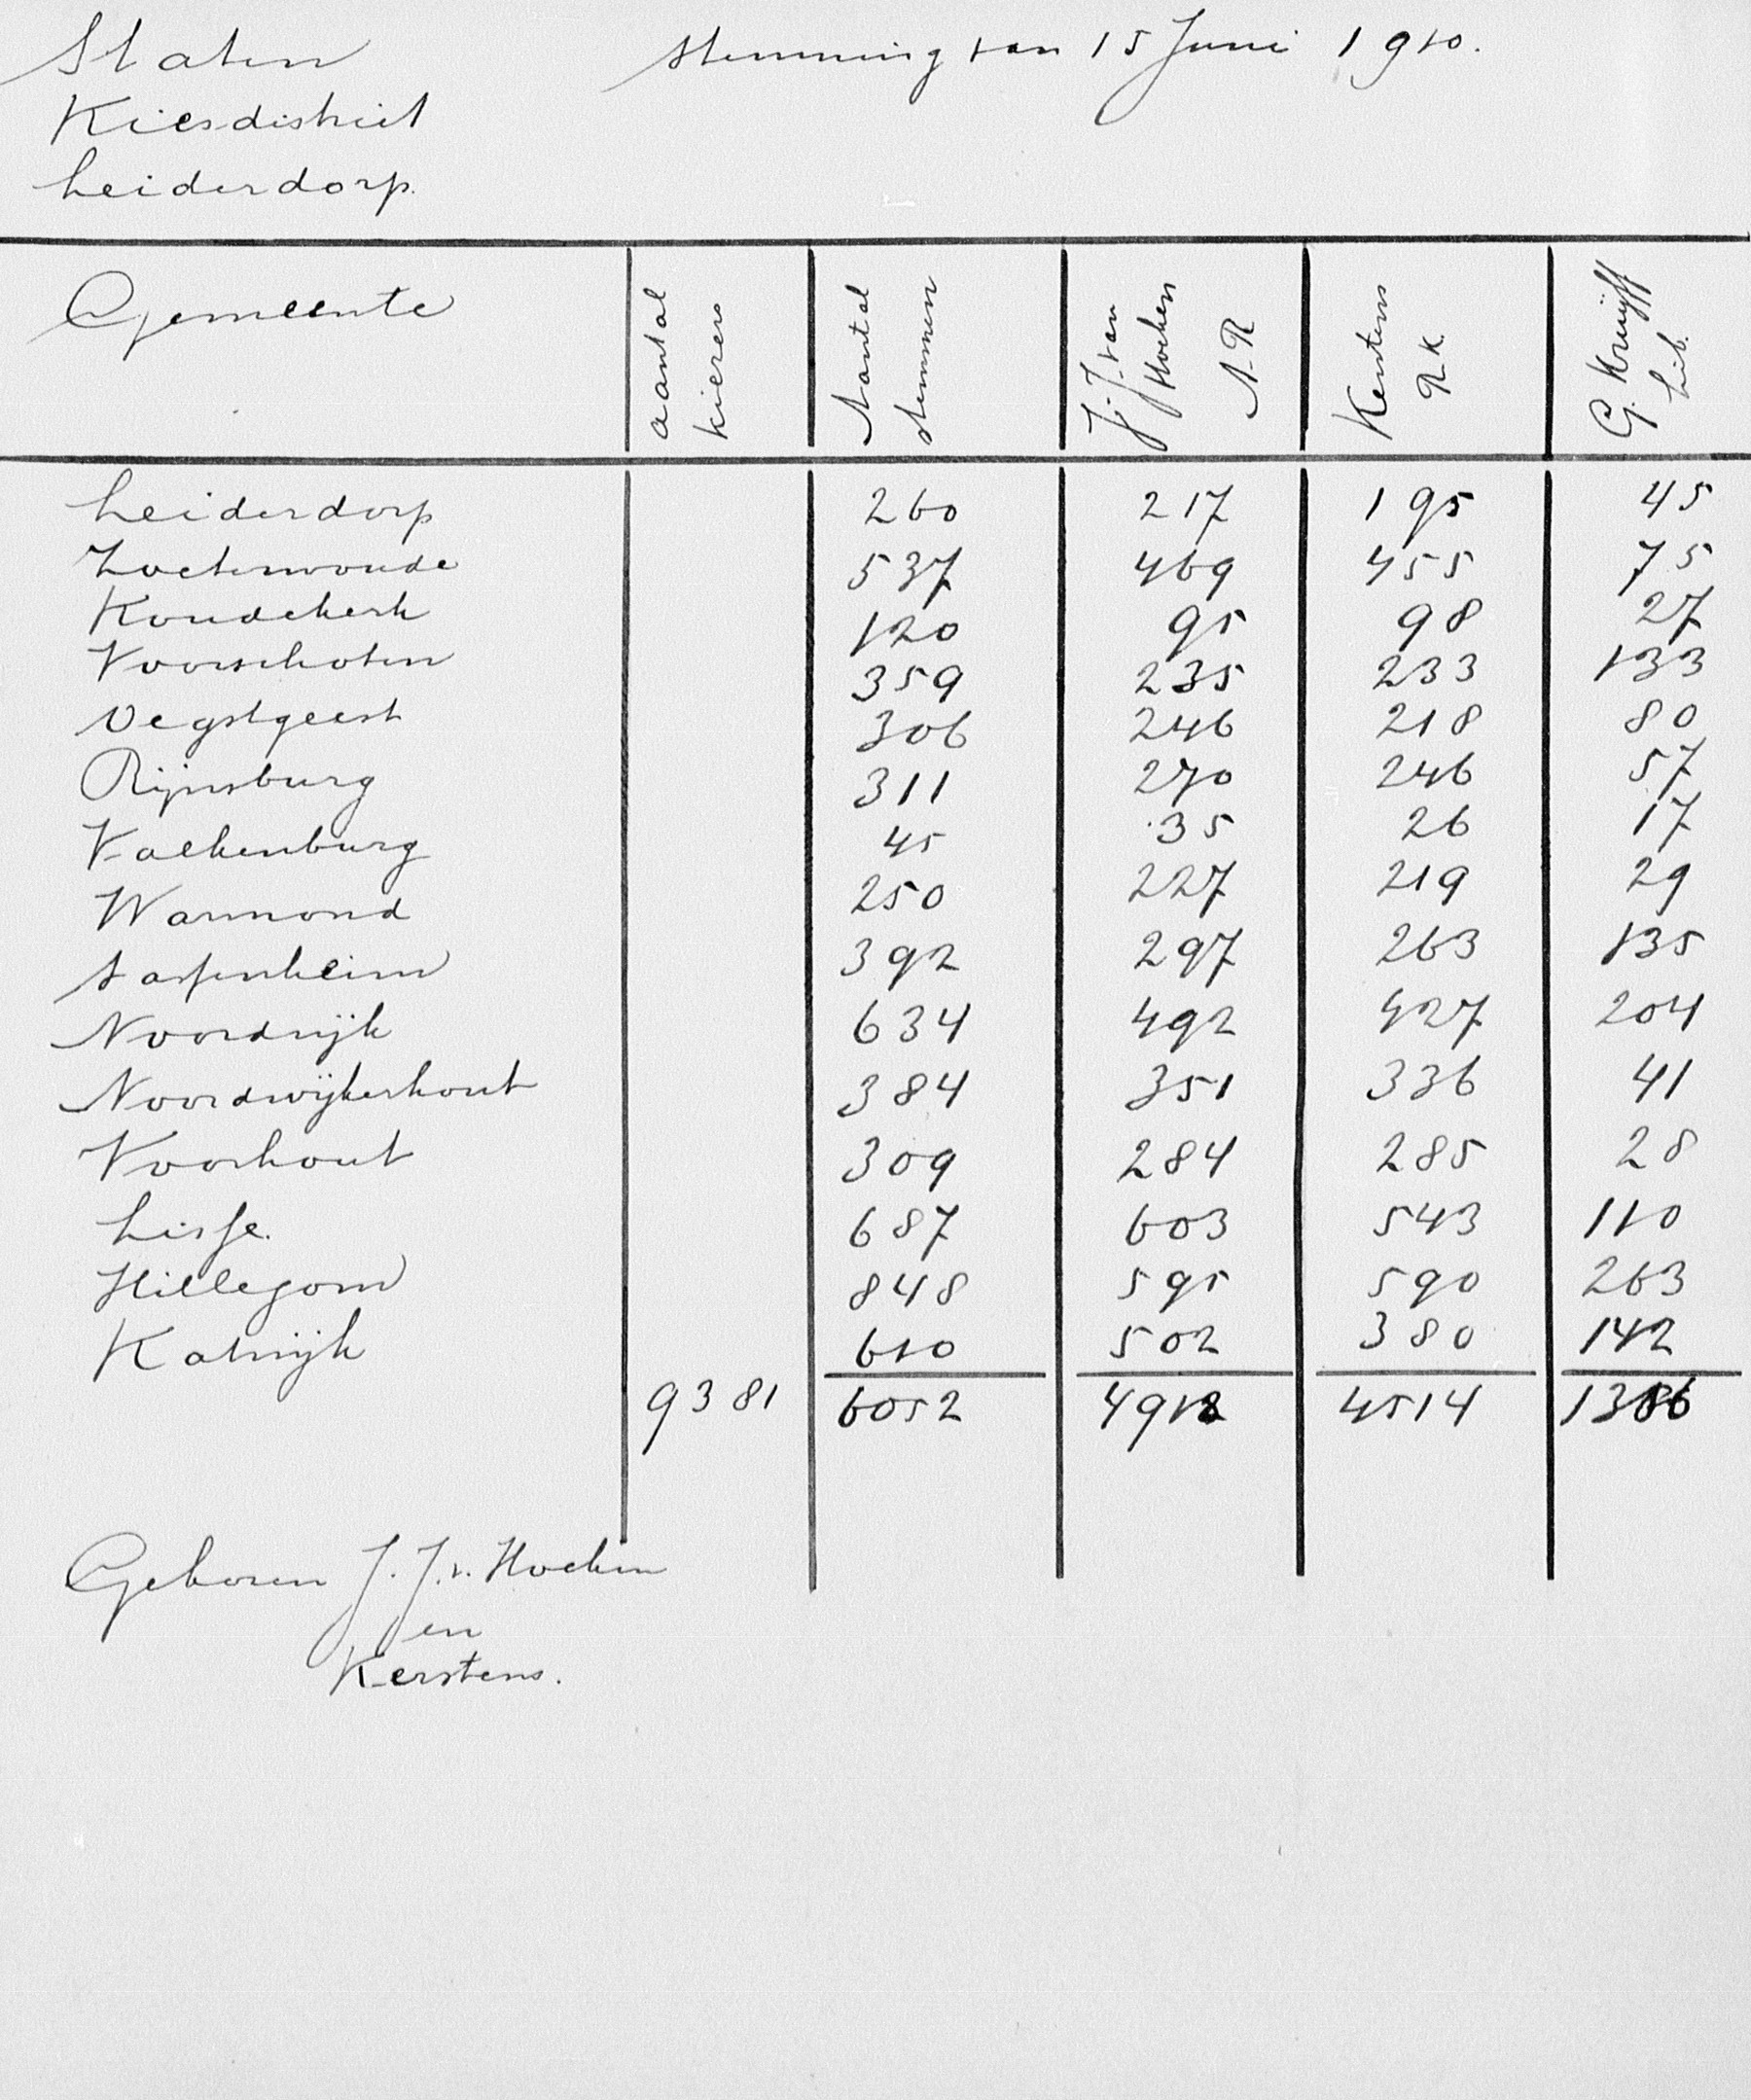 Staten stemming van 15 Juni 1910.
Kiesdistrict
Leiderdorp.
Gemeente
aantal
kiezers
Aantal
stemmen
J. J. van
Hoeken
A-R
Kerstens
R K.
G. Kruijff
Lib.
Leiderdorp 260 217 195 45
Zoeterwoude 537 469 455 75
Koudekerk 120 95 98 27
Voorschoten 359 235 233 133
Oegstgeest 306 246 218 80
Rijnsburg 311 270 246 57
Valkenburg 45 35 26 17
Warmond 250 227 219 29
Sassenheim 392 297 263 135
Noordwijk 634 492 427 204
Noordwijkerhout 384 351 336 41
Voorhout 309 284 285 28
Lisse. 687 603 543 110
Hillegom 848 595 590 263
Katwijk 610 502 380 142
9381 6052 4918 4514 1386
Gekozen J. J. v. Hoeken
en
Kerstens.